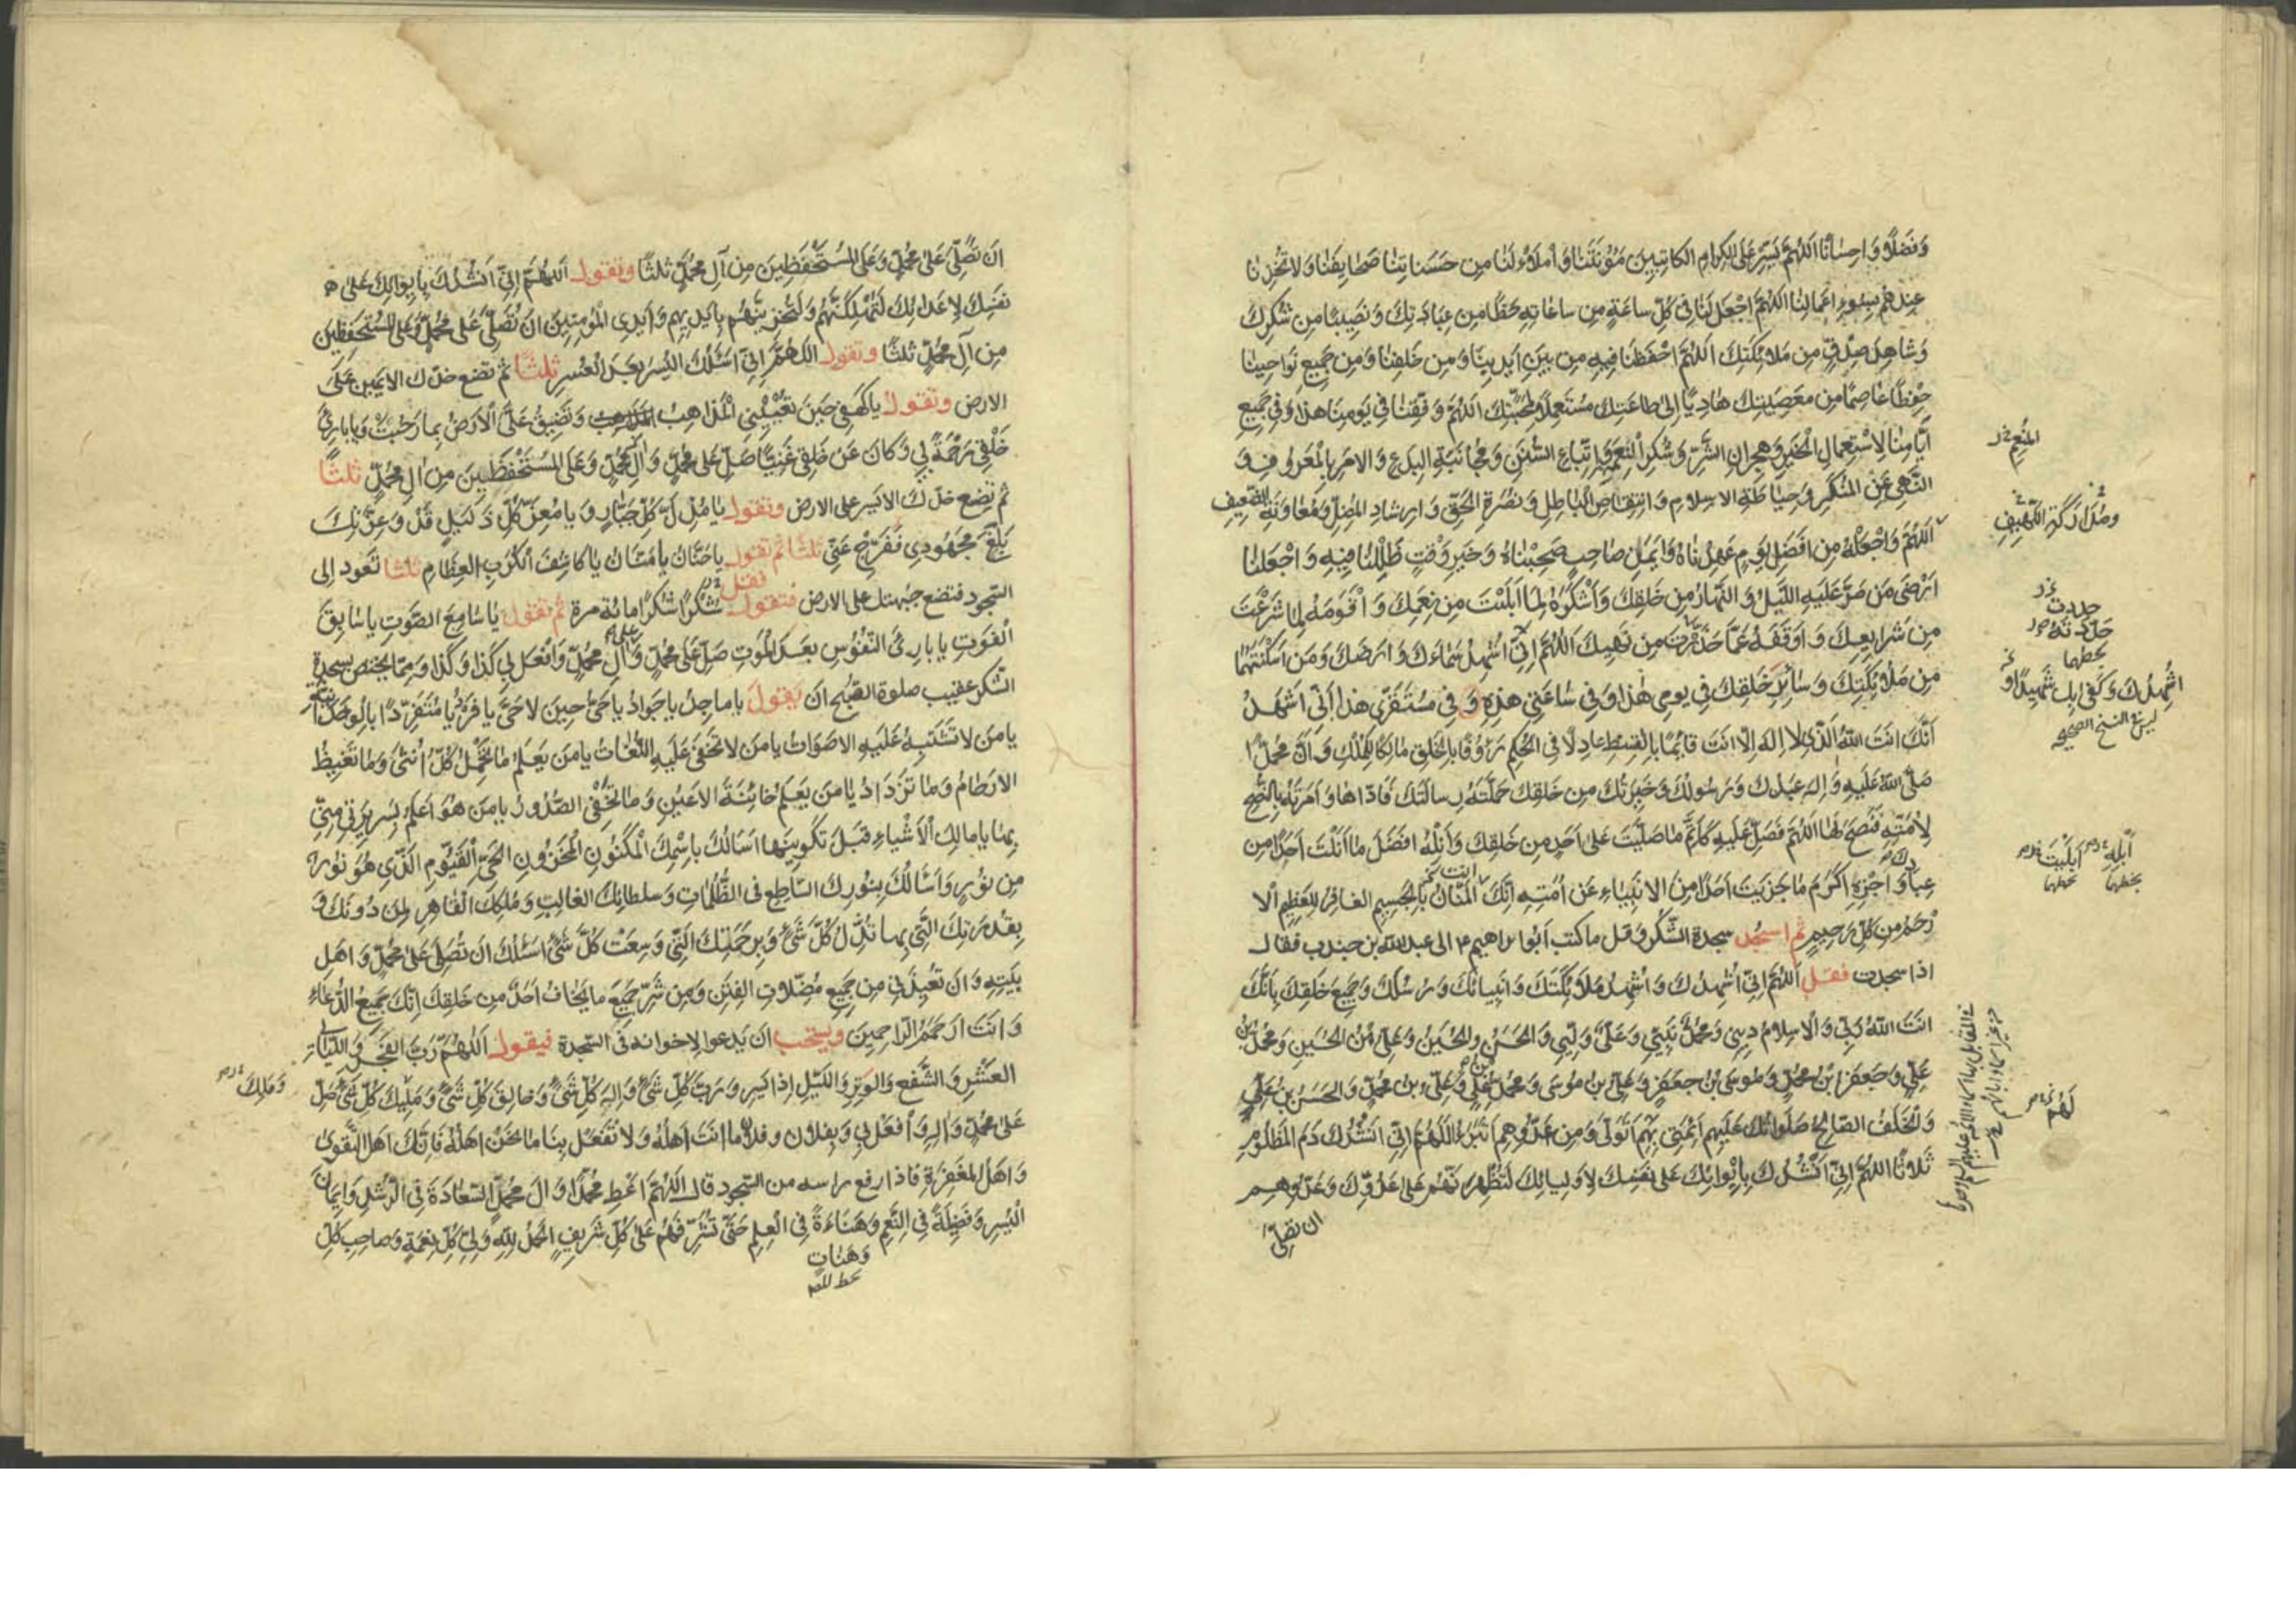 وَفَضْلًا وَاِحسٰانًا اَللّٰهُمَّ يَسِّرْ عَلَى الْكِرامِ الكاتِبِينَ مَؤُنَتَنٰا وَ اْملَاْ لَنٰا مِن حَسَناتِنٰا صَحايِفَنٰا وَلا تُخْزِنٰا
عِندَهُم بِسُوءِ اَعْمالِنٰا اَللّٰهُمَّ اجْعَل لَنٰا فى كُلِّ ساعَةٍ مِن ساعٰاتِهِ حَظًّا مِن عِبادَتِكَ وَنَصِيبًا مِن شُكرِكَ
وَشاهِدَ صِدْقٍ مِن مَلائِكَتِكَ اَللّٰهُمَّ احْفَظنٰا فِيهِ مِن بَيْنِ اَيدِينٰا وَمِن خَلفِنٰا وَمِن جَمِيعِ نَواحِينٰا
حِفظًا عٰاصِمًا مِن مَعصِيَتِكَ هٰادِيًا اِلىٰ طاعَتِكَ مُستَعمِلًا لِمَحَبَّتِكَ اَللّٰهُمَّ وَفِّقنٰا فى يَومِنٰا هٰذا وَفى جَمِيعِ
اَيّٰامِنٰا لِاسْتِعمالِ الْخَيرِ وَهِجرانِ الشَّرِّ وَشُكرِ النِّعَمِ وَاتِّباعِ السُّنَنِ وَمُجٰانَبَةِ البِدَعِ وَالاَمرِ بِالْمَعرُوفِ وَ
النَّهىِ عَنِ الْمُنكَرِ وَحِياطَةِ الاِسلامِ وَانتِقاصِ الْباطِلِ وَنُصرَةِ الحَقِّ وَاِرشادِ الْمُضِلِّ وَمُعٰاوَنَةِ الضَّعِيفِ
اَللّٰهُمَّ وَاجْعَلْهُ مِن اَفضَلِ يَومٍ عَهِدنٰاهُ وَاَيمَنِ صاحِبٍ صَحِبنٰاهُ وَخَيرِ وَقتٍ ظَلِلنٰا فِيهِ وَاجْعَلنٰا
اَرْضىٰ مَن مَرَّ عَلَيهِ اللَّيلُ وَالنَّهارُ مِن خَلقِكَ وَاَشْكَرَهُ لِما اَبلَيتَ مِن نِعَمِكَ وَ اَقْوَمَهُ لِما شَرَعْتَ
مِن شَرايِعِكَ وَ اَوقَفَهُ عَمّٰا حَذَّرتَ مِن نَهيِكَ اَللّٰهُمَّ اِنّى اُشهِدُ سَمٰاءَكَ وَ اَرضَكَ وَمَن اَسكَنتَهُمٰا
مِن مَلائِكَتِكَ وَسٰائِرِ خَلقِكَ فى يَومى هٰذا وَفى سٰاعَتى هٰذِهِ وَ فى مُستَقَرّى هٰذا اَنّى اَشهَدُ
اَنَّكَ اَنتَ اللّٰهُ الَّذى لا اِلٰهَ اِلّا اَنتَ قائِمًا بِالقِسطِ عادِلًا فى الحُكمِ رَؤُفًا بِالخَلقِ مٰالِكًا لِلمُلكِ وَ اَنَّ مُحَمَّدًا
صَلَّى اللّٰهُ عَلَيهِ وَاٰلِهِ عَبدُكَ وَرَسُولُكَ وَخِيَرَتُكَ مِن خَلقِكَ حَمَّلتَهُ رِسالَتَكَ فَاَدّاهٰا وَ اَمَرتَهُ بِالنُّصحِ
لِاُمَّتِهِ فَنَصَحَ لَهٰا اَللّٰهُمَّ فَصَلِّ عَلَيهِ كَاَتَمِّ مٰا صَلَّيتَ عَلىٰ اَحَدٍ مِن خَلقِكَ وَاَنِلْهُ اَفضَلَ مٰا اَنَلْتَ اَحَدًا مِن
عِبادِكَ وَ اجْزِهِ اَكرَمَ مٰا جَزَيتَ اَحَدًا مِنَ الاَنبِيٰاءِ عَن اُمَّتِهِ اِنَّكَ اَنتَ المَنّانُ بِالجَسِيمِ الغافِرُ لِلعَظِيمِ الا
رْحَمُ مِن كُلِّ رَحِيمٍ ثم اسجُد سجدة الشكر وقل ما كتب ابوابراهيم ع الى عبد الله بن جندب فقال
اذا سجدت فقل اَللّٰهُمَّ اِنّى اُشهِدُكَ وَ اُشهِدُ مَلائِكَتَكَ وَ اَنبِيائَكَ وَ رُسُلَكَ وَجَمِيعَ خَلقِكَ بِاَنَّكَ
اَنتَ اللّٰهُ رَبّى وَالاِسلامَ دِينى وَمُحَمَّدًا نَبِيّى وَعَلِيًّا وَلِيّى وَالحَسَنَ وَالحُسَينَ وَعَلِىَّ بْنَ الحُسَينِ وَمُحَمَّدَ بْنَ
عَلِىٍّ وَجَعفَرَ بْنَ مُحَمَّدٍ وَمُوسَى بْنَ جَعفَرٍ وَعَلِىَّ بْنَ مُوسى وَمُحَمَّدَ بن عَلِىٍّ وَعَلِىَّ بْنَ مُحَمَّدٍ وَالحَسَنَ بْنَ عَلِىٍّ
وَالخَلَفَ الصّالِحَ صَلَواتُكَ عَلَيهِم اَئِمَّتى بِهِم اَتَوَلّىٰ وَمِن عَدُوِّهِم اَتَبَرَّءُ اَللّٰهُمَّ اِنّى اَنشُدُكَ دَمَ المَظلُومِ
ثَلاثًا اَللّٰهُمَّ اِنّى اَنشُدُكَ بِاِيوائِكَ عَلى نَفسِكَ لِاَولِيائِكَ لَتُظفِرَنَّهُم عَلى عَدُوِّكَ وَعَدُوِّهِم
ان تصلى
النِعَم
حددت
حَدَّدتَهُ
بخطهما
اُشهِدُكَ وَكَفى بِكَ شَهِيدًا وَ
ليس فى النسخ الصحيحة
اَبلِهِ
بخطهما
اَبلَيتَ
بخطهما
لَهُم
اَن تُصَلِّىَ عَلى مُحَمَّدٍ وَعَلَى المُستَحفَظِينَ مِن آلِ مُحَمَّدٍ ثلثًا وتقول اَللّٰهُمَّ اِنّى اَنشُدُكَ بِاِيوائِكَ عَلى
نَفسِكَ لِاَعدائِكَ لَتُهلِكَنَّهُم وَلَتُخزِيَنَّهُم بِاَيدِيهِم وَاَيدِى المُؤمِنِينَ اَن تُصَلِّىَ عَلى مُحَمَّدٍ وَعَلَى المُستَحفَظِينَ
مِن آلِ مُحَمَّدٍ ثلثًا وتقول اَللّٰهُمَّ اِنّى اَسئَلُكَ اليُسرَ بَعدَ العُسرِ ثلثًا ثم تضع خدّك الايمن على
الارض وتقول ياكَهفى حِينَ تُعيِينِى المَذاهِبُ وَتَضِيقُ عَلَىَّ الاَرضُ بِما رَحُبَت وَيا بارِئَ
خَلقى رَحمَةً بى وَكانَ عَن خَلقى غَنِيًّا صَلِّ عَلى مُحَمَّدٍ وَآلِ مُحَمَّدٍ وَعَلَى المُستَحفَظِينَ مِن آلِ مُحَمَّدٍ ثلثًا
ثم تضع خدّك الايسر على الارض وتقول يا مُذِلَّ كُلِّ جَبّارٍ وَ يا مُعِزَّ كُلِّ ذَلِيلٍ قَد وَعِزَّتِكَ
بَلَغَ مَجهُودى فَفَرِّج عَنّى ثلثًا ثم تقول يا حَنّانُ يا مَنّانُ يا كاشِفَ الكُرَبِ العِظامِ ثلثا تعود الى
السجود فتضع جبهتك على الارض فتقول شكرًا شكرًا مائة مرة ثم تقول يا سامِعَ الصَّوتِ يا سابِقَ
الفَوتِ يا بارِئَ النُّفُوسِ بَعدَ المَوتِ صَلِّ عَلى مُحَمَّدٍ وَآلِ مُحَمَّدٍ وَافعَل بى كَذا وَكَذا وَ ممّا يختص بسجدة
الشكر عقيب صلوة الصبح ان يقول يا ماجِدُ يا جَوادُ يا حَىُّ حِينَ لا حَىَّ يا فَردُ يا مُتَفَرِّدًا بِالوَحدانِيَّةِ
يا مَن لا تَشتَبِهُ عَلَيهِ الاَصواتُ يا مَن لا تَخفى عَلَيهِ اللُّغاتُ يا مَن يَعلَمُ ما تَحمِلُ كُلُّ اُنثى وَما تَغِيضُ
الاَرحامُ وَما تَزدادُ يا مَن يَعلَمُ خائِنَةَ الاَعيُنِ وَما تُخفِى الصُّدُورُ يا مَن هُوَ اَعلَمُ بِسَرِيرَتى مِنّى
بِها يا مالِكَ الاَشياءِ قَبلَ تَكوِينِها اَسأَلُكَ بِاسمِكَ المَكنُونِ المَخزُونِ الحَىِّ القَيُّومِ الَّذى هُوَ نُورٌ
مِن نُورٍ وَاَسأَلُكَ بِنُورِكَ السّاطِعِ فى الظُّلُماتِ وَسُلطانِكَ الغالِبِ وَمُلكِكَ القاهِرِ لِمَن دُونَكَ وَ
بِقُدرَتِكَ الَّتى بِها تُذِلُّ كُلَّ شَىءٍ وَبِرَحمَتِكَ الَّتى وَسِعَت كُلَّ شَىءٍ اَسئَلُكَ اَن تُصَلِّىَ عَلى مُحَمَّدٍ وَ اَهلِ
بَيتِهِ وَ اَن تُعِيذَنى مِن جَمِيعِ مُضِلّاتِ الفِتَنِ وَمِن شَرِّ جَمِيعِ ما يَخافُ اَحَدٌ مِن خَلقِكَ اِنَّكَ سَمِيعُ الدُّعاءِ
وَ اَنتَ اَرحَمُ الرّاحِمِينَ ويستحب ان يدعوا لاخوانه فى السجدة فيقول اَللّٰهُمَّ رَبَّ الفَجرِ وَ اللَّيالِى
العَشرِ وَ الشَّفعِ وَالوَترِ وَاللَّيلِ اِذا يَسرِ وَ رَبَّ كُلِّ شَىءٍ وَاِلٰهَ كُلِّ شَىءٍ وَ خالِقَ كُلِّ شَىءٍ وَ مَلِيكَ كُلِّ شَىءٍ صَلِّ
عَلى مُحَمَّدٍ وَآلِهِ وَ افعَل بى وَ بِفُلانٍ وَ فلان ما اَنتَ اَهلُهُ وَلا تَفعَل بِنا ما نَحنُ اَهلُهُ فَاِنَّكَ اَهلُ التَّقوى
وَ اَهلُ المَغفِرَةِ فاذا رفع راسه من السجود قال اَللّٰهُمَّ اَعطِ مُحَمَّدًا وَ آلَ مُحَمَّدٍ السَّعادَةَ فى الرُّشدِ وَ اِيمانَ
اليُسرِ وَفَضِيلَةً فى النِّعَمِ وَهَناءَةً فى العِلمِ حَتّى تُشَرِّفَهُم عَلى كُلِّ شَرِيفٍ الحَمدُ لِلّٰهِ وَلِىِّ كُلِّ نِعمَةٍ وَصاحِبِ كُلِّ
وَمَلِكَ